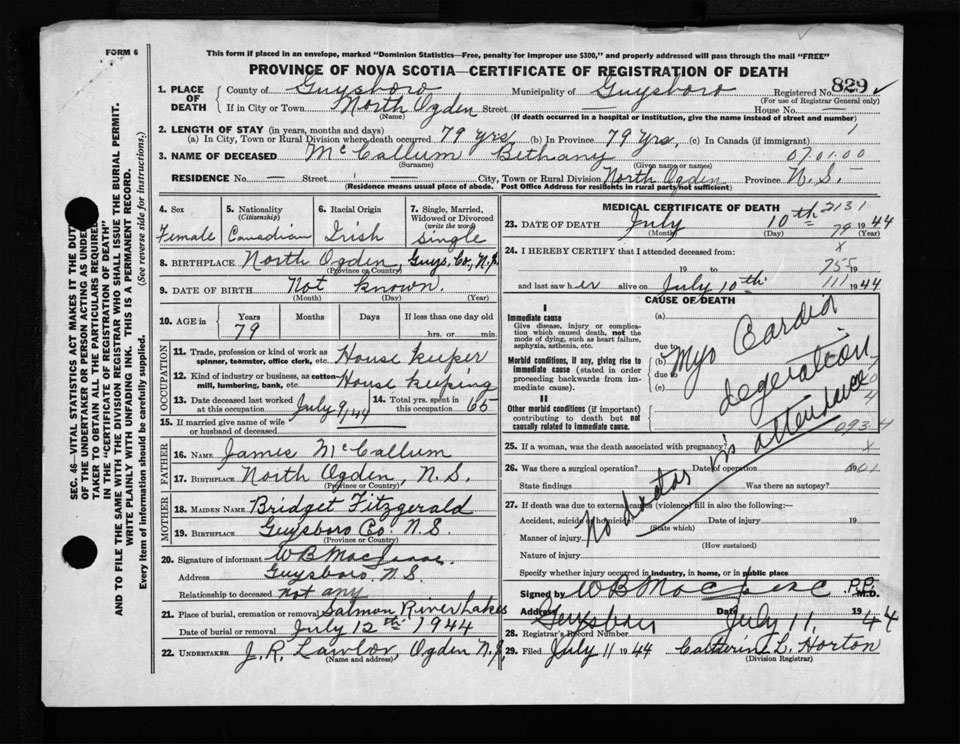 FORM 6
This form if placed in an envelope, marked "Dominion Statistics—Free, penalty for improper use $300," and properly addressed will pass through the mail "FREE"
PROVINCE OF NOVA SCOTIA—CERTIFICATE OF REGISTRATION OF DEATH
829
1. PLACE OF DEATH { County of Guysboro Municipality of Guysboro Registered No.
(For use of Registrar General only)
If in City or Town North Ogden Street — House No. —
(Name) (If death occurred in a hospital or institution, give the name instead of street and number)
2. LENGTH OF STAY (in years, months and days)
(a) In City, Town or Rural Division where death occurred 79 yrs (b) in Province 79 Yrs. (c) In Canada (if immigrant)
3. NAME OF DECEASED McCallum Bethany 0701.00
(Surname) (Given name or names)
RESIDENCE No. — Street — City, Town or Rural Division North Ogden Province N.S.
(Residence means usual place of abode. Post Office Address for residents in rural parts not sufficient)
4. Sex Female
5. Nationality (Citizenship) Canadian
6. Racial Origin Irish
7. Single, Married, Widowed or Divorced (write the word) Single
8. BIRTHPLACE North Ogden, Guys. Co., N.S.
(Province or Country)
9. DATE OF BIRTH Not known.
(Month) (Day) (Year)
10. AGE in Years 79 Months Days If less than one day old hrs. or min.
OCCUPATION
11. Trade, profession or kind of work as spinner, teamster, office clerk, etc. House keeper
12. Kind of industry or business, as cotton-mill, lumbering, bank, etc. House keeping
13. Date deceased last worked at this occupation July 9/44 14. Total yrs. spent in this occupation 65
15. If married give name of wife or husband of deceased
FATHER
16. NAME James McCallum
17. BIRTHPLACE North Ogden, N.S.
(Province or Country)
MOTHER
18. MAIDEN NAME Bridget Fitzgerald
19. BIRTHPLACE Guysboro Co. N.S.
(Province or Country)
20. Signature of informant WB MacIsaac
Address Guysboro N.S.
Relationship to deceased not any
21. Place of burial, cremation or removal Salmon River Lakes
Date of burial or removal July 12th 1944
22. UNDERTAKER J.R. Lawlor, Ogden N.S.
(Name and address)
MEDICAL CERTIFICATE OF DEATH
2131
23. DATE OF DEATH July 10th 1944
(Month) (Day) 79 (Year)
24. I HEREBY CERTIFY that I attended deceased from: x
19 to 755 19
and last saw her alive on July 10th 1944
CAUSE OF DEATH
I
Immediate cause
Give disease, injury or complication which caused death, not the mode of dying, such as heart failure, asphyxia, asthenia, etc.
Morbid conditions, if any, giving rise to immediate cause (stated in order proceeding backwards from immediate cause).
II
Other morbid conditions (if important) contributing to death but not causally related to immediate cause.
(a)
due to
(b)
due to
(c)
Myo Cardid
degeration
No doctor in attendance
0934
25. If a woman, was the death associated with pregnancy? x
26. Was there a surgical operation? Date of operation
State findings Was there an autopsy?
27. If death was due to external causes (violence) fill in also the following:
Accident, suicide or homicide? Date of injury 19
(State which)
Manner of injury
(How sustained)
Nature of injury
Specify whether injury occurred in industry, in home, or in public place
Signed by WB MacIsaac P.P. M.D.
Address Guysboro Date July 11, 1944
28. Registrar's Record Number
29. Filed July 11 1944 Catherine L. Horton
(Division Registrar)
SEC. 46—VITAL STATISTICS ACT MAKES IT THE DUTY
OF THE UNDERTAKER OR PERSON ACTING AS UNDERTAKER
TO OBTAIN ALL THE PARTICULARS REQUIRED
IN THE "CERTIFICATE OF REGISTRATION OF DEATH"
AND TO FILE THE SAME WITH THE DIVISION REGISTRAR WHO SHALL ISSUE THE BURIAL PERMIT.
WRITE PLAINLY WITH UNFADING INK. THIS IS A PERMANENT RECORD.
Every item of information should be carefully supplied. (See reverse side for instructions.)